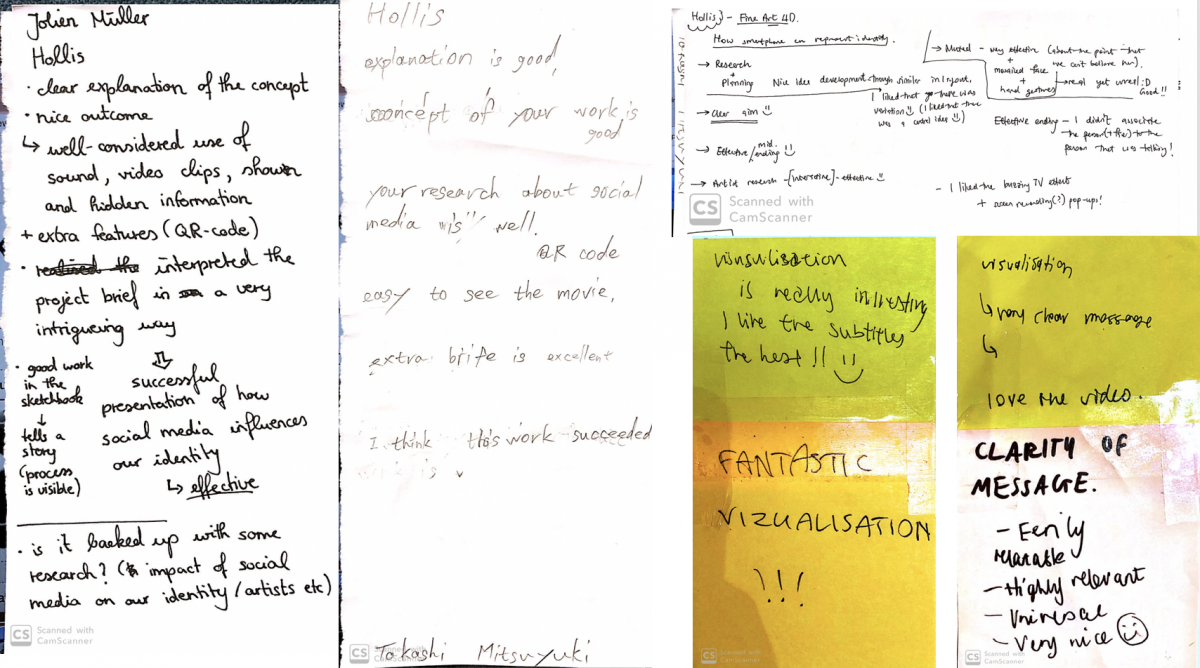 Jolien Müller
Hollis
· clear explanation of the concept
· nice outcome
↳ well-considered use of
sound, video clips, shown
and hidden information
+ extra features (QR-code)
· interpreted the
project brief in a very
intrigueing way
⇓
successful
presentation of how
social media influences
our identity
↳ effective
· good work
in the
sketchbook
↓
tells a
story
(process
is visible)
· is it backed up with some
research? (impact of social
media on our identity / artists etc)
CS Scanned with
CamScanner
Hollis
explanation is good,
concept of your work is
good
your research about social
media is well.
QR code
easy to see the movie,
extra brife is excellent
I think this work succeeded
CS Scanned with
CamScanner
Takashi Mitsuyuki
Hollis } - Fine Art 4D.
How smartphone can represent identity.
→ Research
+
Planning
Nice idea development through similar in layout,
I liked that there was
variation
→ Clear aim
→ Effective / mid.
ending
→ Artist research - [interactive] - effective
→ Muted - very effective (about the point that
we can't believe him).
+
mosaiced face
+
hand gestures
→ real yet unreal :D
Good!!
Effective ending - I didn't associate
the person to the
person that was talking!
- I liked the buzzing TV effect
+ screen recording(?) pop-ups!
CS Scanned with
CamScanner
vinsuilisation
is really intresting
I like the subtitles
the best !!
visualisation
↳ very clear message
↳
love the video.
FANTASTIC
VIZUALISATION
!!!
CS Scanned with
CamScanner
CLARITY OF
MESSAGE.
- Eerily
relatable
- Highly relevant
- Universal
- Very nice
CS Scanned with
CamScanner